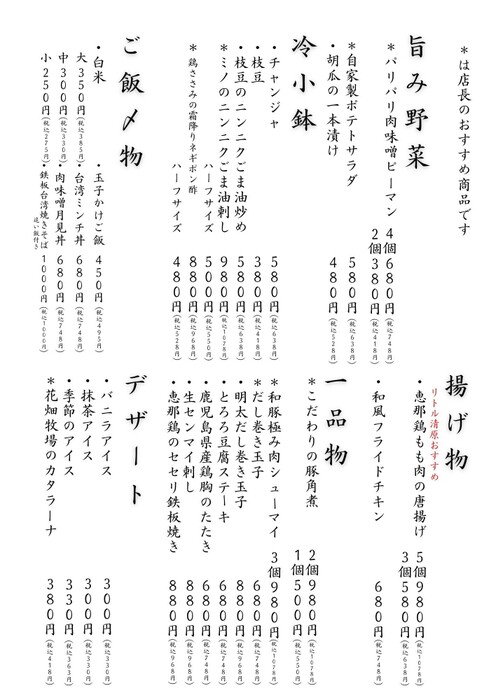 ＊は店長のおすすめ商品です
旨み野菜
＊パリパリ肉味噌ピーマン 4個680円(税込748円)
2個380円(税込418円)
＊自家製ポテトサラダ 580円(税込638円)
・胡瓜の一本漬け 480円(税込528円)
冷小鉢
・チャンジャ 580円(税込638円)
・枝豆 380円(税込418円)
・枝豆のニンニクごま油炒め 580円(税込638円)
＊ミノのニンニクごま油刺し 980円(税込1078円)
ハーフサイズ 500円(税込550円)
＊鶏ささみの霜降りネギポン酢 880円(税込968円)
ハーフサイズ 480円(税込528円)
ご飯〆物
・白米
大 350円(税込385円)
中 300円(税込330円)
小 250円(税込275円)
・玉子かけご飯 450円(税込495円)
・台湾ミンチ丼 680円(税込748円)
・肉味噌月見丼 680円(税込748円)
・鉄板台湾焼きそば 1000円(税込1000円)
追い飯付き
揚げ物
リトル清原おすすめ
・恵那鶏もも肉の唐揚げ 5個980円(税込1078円)
3個580円(税込638円)
・和風フライドチキン 680円(税込748円)
一品物
＊こだわりの豚角煮 2個980円(税込1078円)
1個500円(税込550円)
＊和豚極み肉シューマイ 3個980円(税込1078円)
＊だし巻き玉子 680円(税込748円)
・明太だし巻き玉子 880円(税込968円)
・とろろ豆腐ステーキ 680円(税込748円)
・鹿児島県産鶏胸のたたき 680円(税込748円)
・生センマイ刺し 880円(税込968円)
・恵那鶏のセセリ鉄板焼き 880円(税込968円)
デザート
・バニラアイス 300円(税込330円)
・抹茶アイス 300円(税込330円)
・季節のアイス 330円(税込363円)
＊花畑牧場のカタラーナ 380円(税込418円)